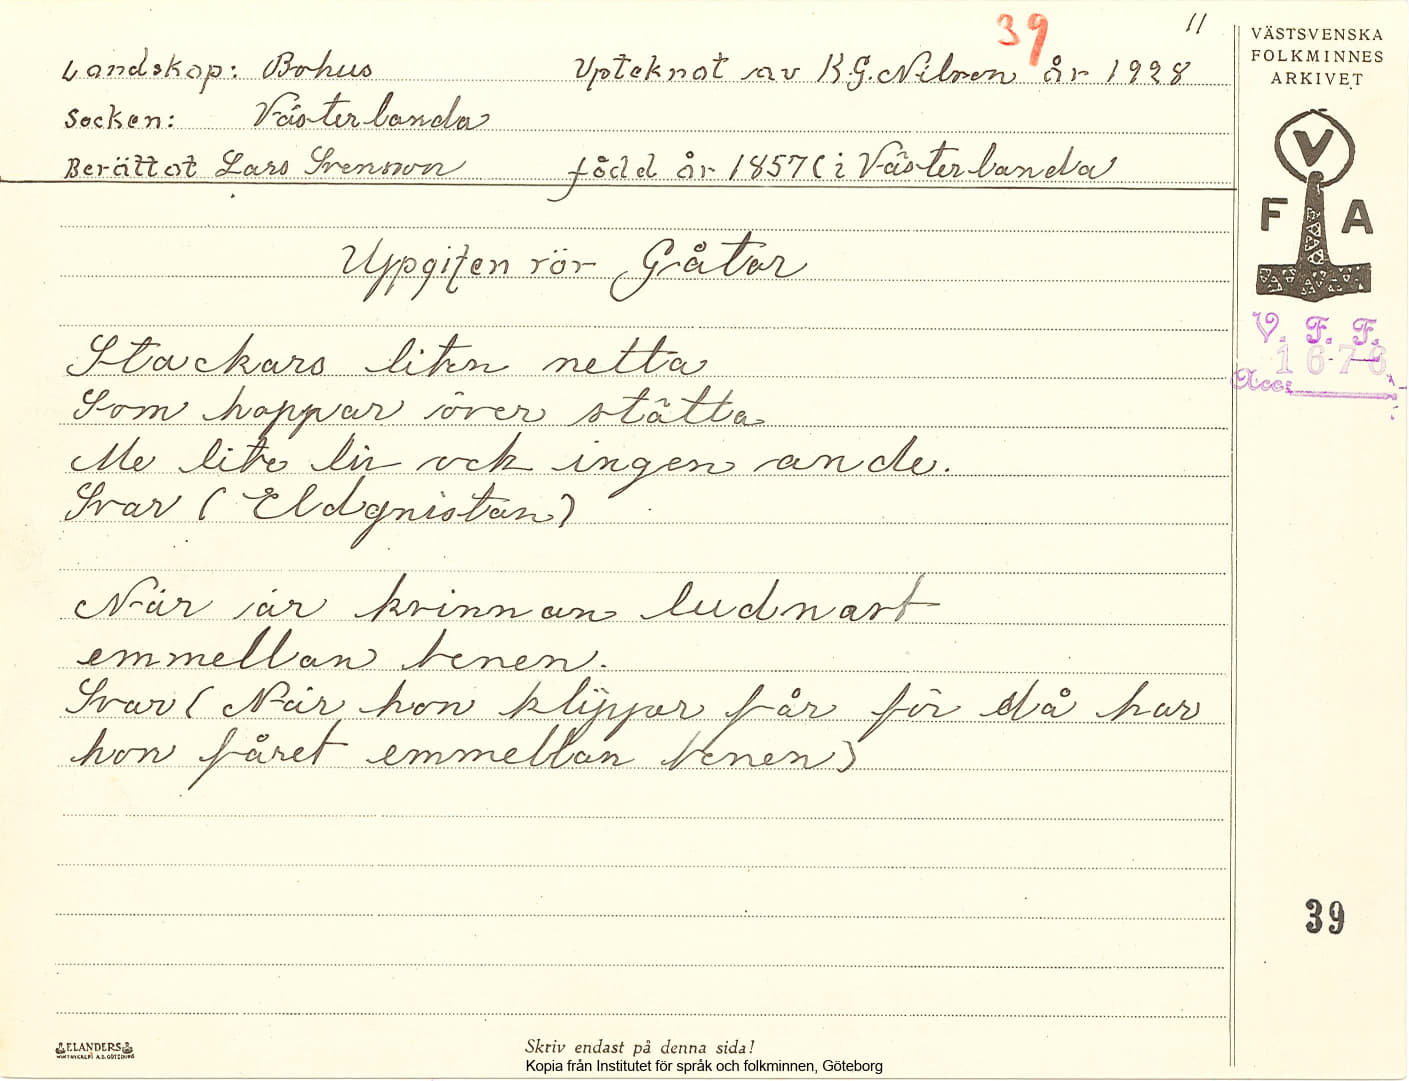 39 11
Landskap: Bohus Upteknat av K.G. Nilsen år 1928
Socken: Västerlanda
Berättat Lars Svensson född år 1857 ( i Västerlanda
Uppgiften rör Gåtor
Stackars liten netta
Som hoppar över stätta
Me lite liv ock ingen ande.
Svar ( Eldgnistan )
När är kvinnan ludnast
emmellan benen.
Svar ( När hon klipper får för då har
hon fåret emmellan benen )
VÄSTSVENSKA
FOLKMINNES
ARKIVET
V
F A
V. F. F.
1678
Acc:
39
ELANDERS
Skriv endast på denna sida!
Kopia från Institutet för språk och folkminnen, Göteborg